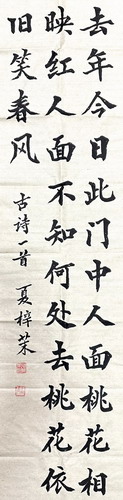 去年今日此门中人面桃花相
映红人面不知何处去桃花依
旧笑春风
古诗一首 夏梓茱